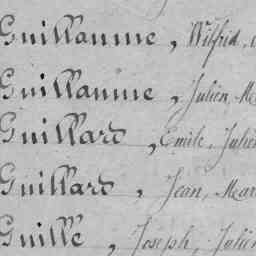 Guillaume, Wilfrid,
Guillaume, Julien,
Guillard, Emile, Julien
Guillard, Jean,
Guille, Joseph, Julien